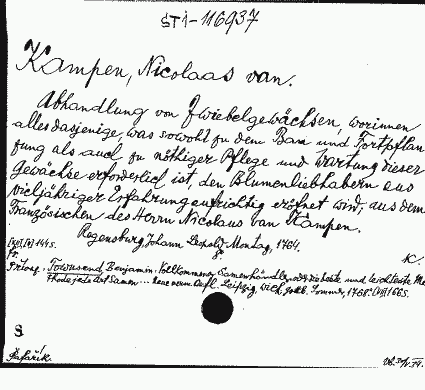 ŠT1-116937
Kampen, Nicolaas van.
Abhandlung von Zwiebelgewächsen, worinnen
alles dasjenige, was sowohl zu dem Bau und Fortpflan
zung als auch zu nöthiger Pflege und Wartung dieser
Gewächse erforderlich ist, den Blumenliebhabern aus
vieljähriger Erfahrung aufrichtig eröfnet wird, aus dem
Französischen des Herrn Nicolaus van Kampen.
Regensburg, Johann Leopold Montag, 1764.
144 S. K.
Fr.
Přívaz. Townsend, Benjamin: Vollkommener Samenhändler oder die beste und leichteste
jede Art Samen ... neue verm. Aufl. Leipzig, Gottl. Sommer, 1768. 166 S.
S
Šafařík.